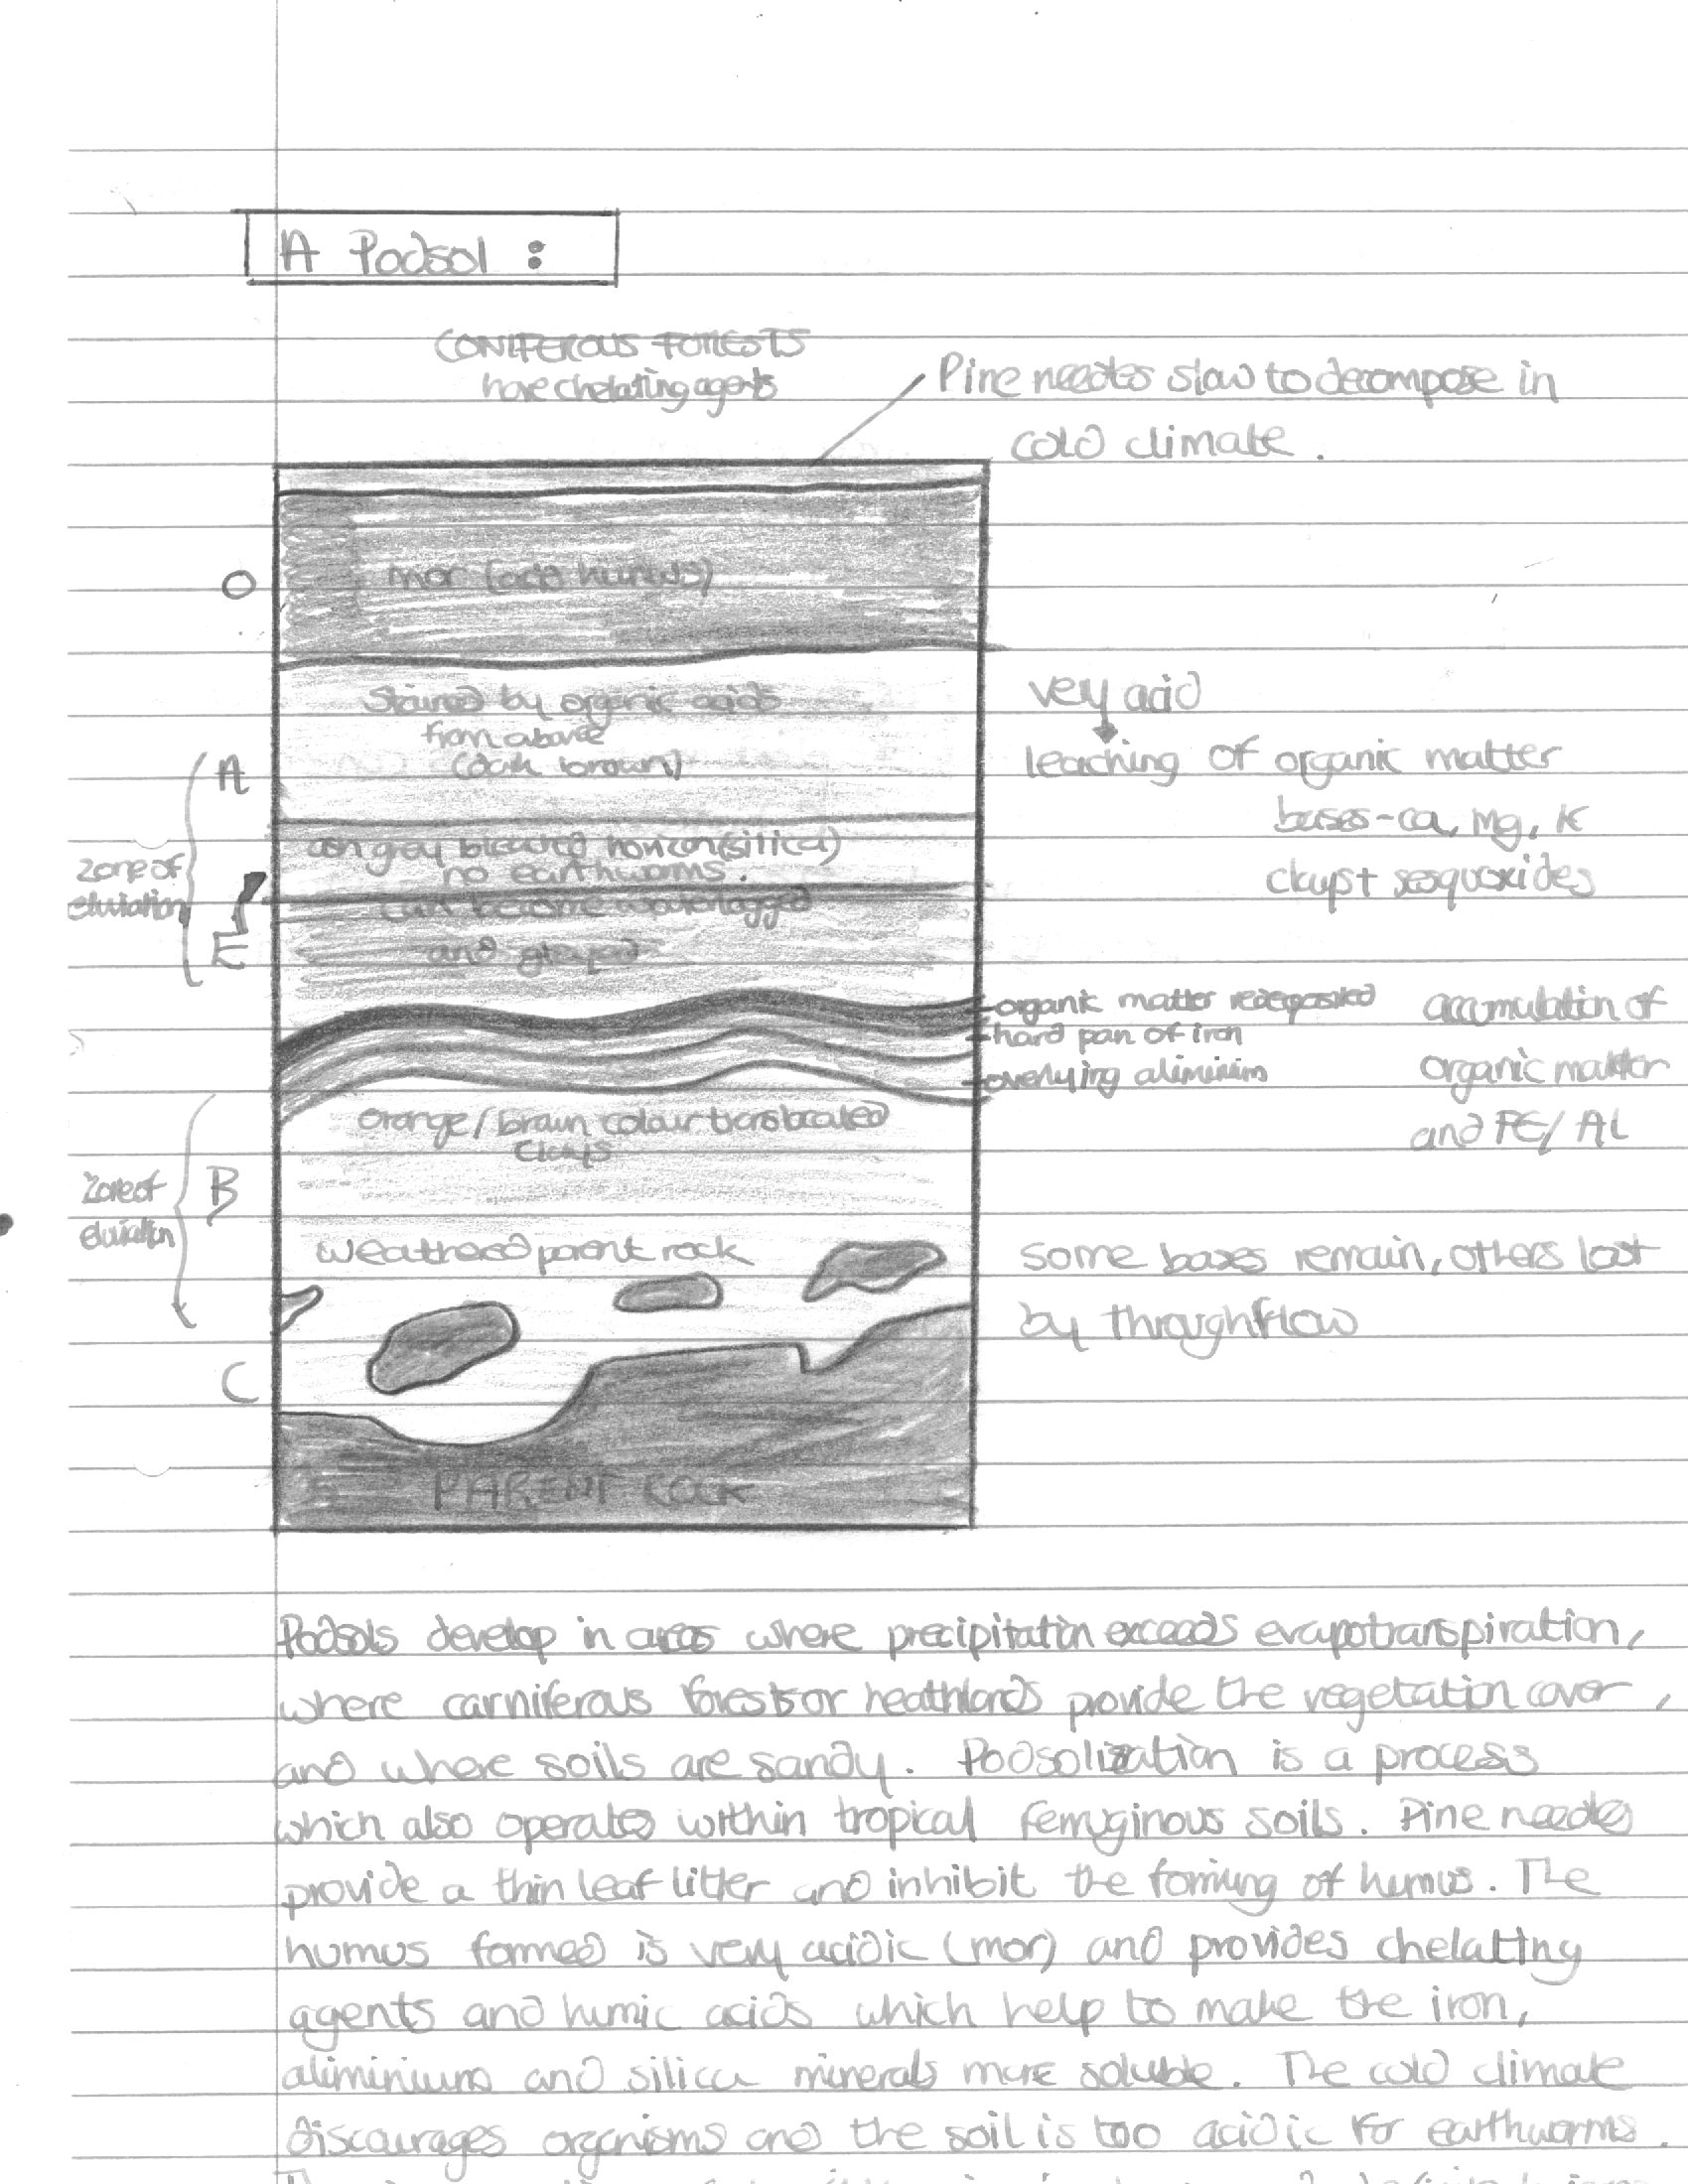 A Podsol :
CONIFEROUS FORESTS
have chelating agents
Pine needles slow to decompose in
cold climate .
O
mor (acid humus)
Stained by organic acids
from above
(dark brown)
very acid
leaching of organic matter
bases - ca, Mg, K
clays + sesquoxides
A
zone of
eluviation
ash grey bleached horizon (silica)
no earthworms .
can become waterlogged
and gleyed
E
organic matter redeposited
hard pan of iron
overlying aliminium
accumulation of
organic matter
and FE/ AL
Orange / brown colour translocated
Clays
B
Zone of
weathered parent rock
some bases remain, others lost
by throughflow
C
PARENT ROCK
Podsols develop in areas where precipitation exceeds evapotranspiration,
where carniferous forests or heathlands provide the vegetation cover ,
and where soils are sandy. Podsolization is a process
which also operates within tropical ferruginous soils. Pine needles
provide a thin leaf litter and inhibit the forming of humus. The
humus formed is very acidic (mor) and provides chelating
agents and humic acids which help to make the iron,
aliminium and silica minerals more soluble. The cold climate
discourages organisms and the soil is too acidic for earthworms.